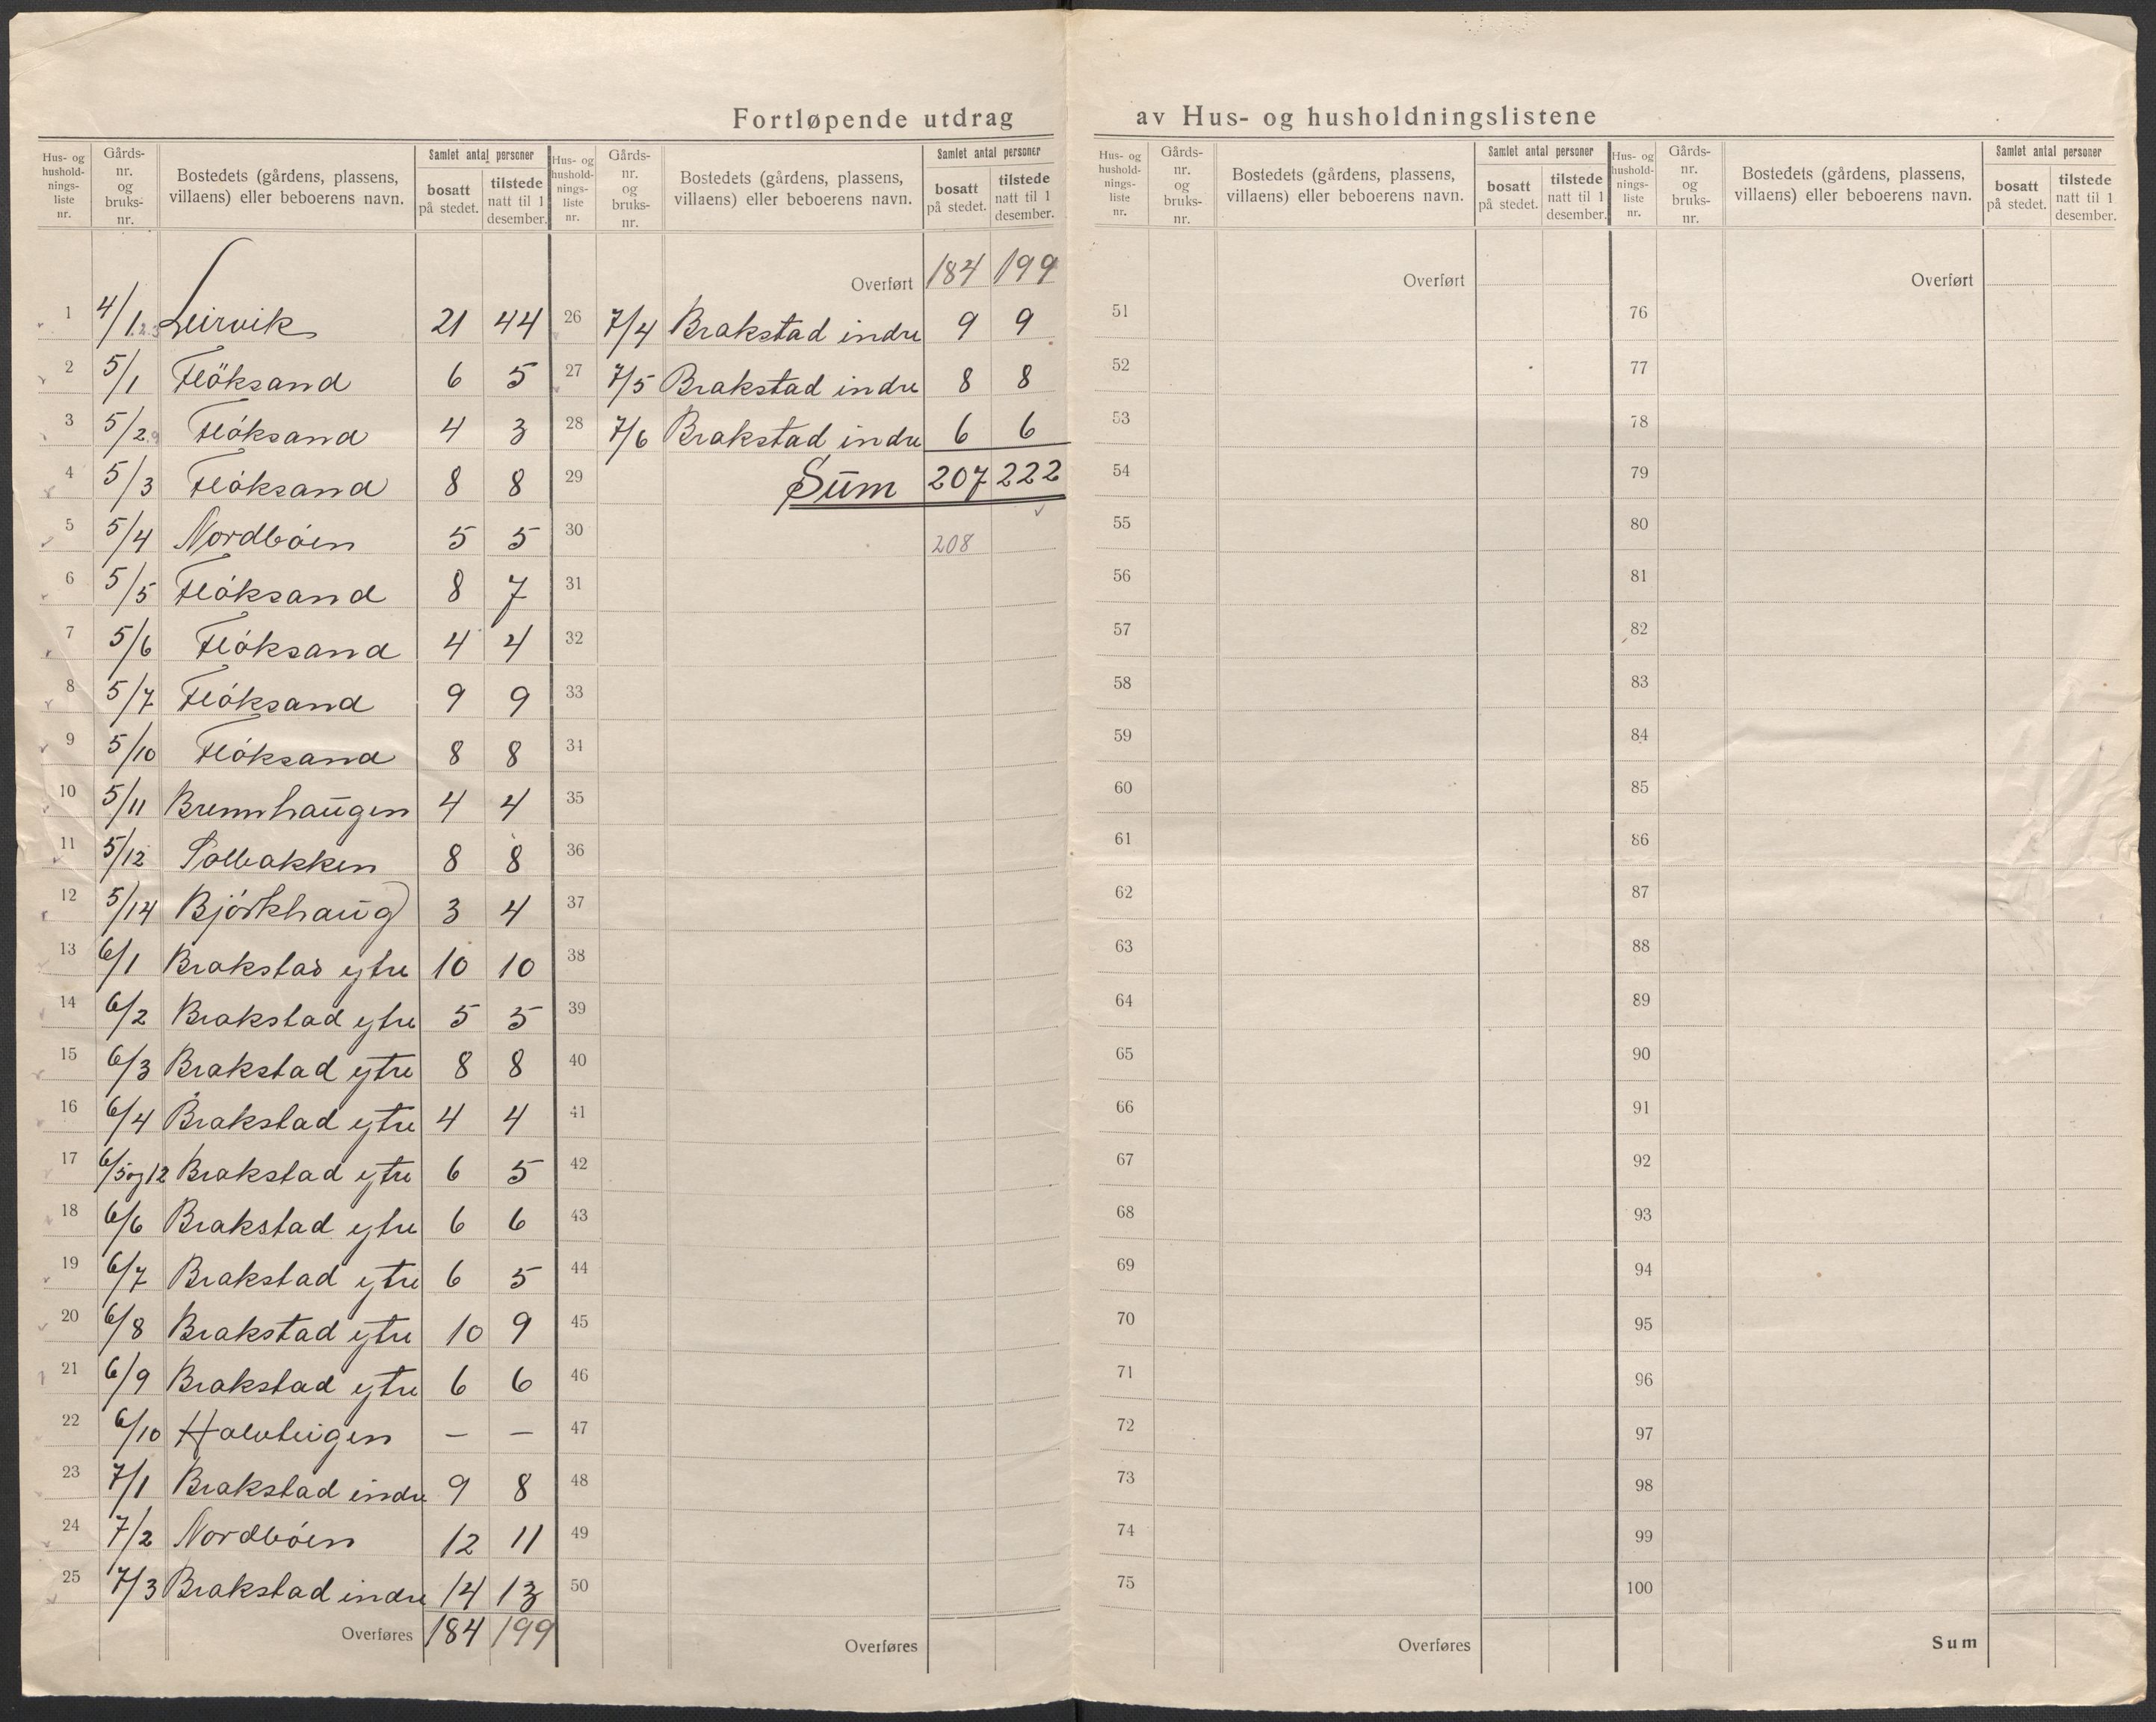 Fortløpende utdrag av Hus- og husholdningslistene
Hus- og hushold-nings-liste nr. | Gårds-nr. og bruks-nr. | Bostedets (gårdens, plassens, villaens) eller beboerens navn. | Samlet antal personer | bosatt på stedet. | tilstede natt til 1 desember.
1 4/1.2.3 Leirvik 21 44
2 5/1 Flöksand 6 5
3 5/2.9 Flóksand 4 3
4 5/3 Flóksand 8 8
5 5/4 Nordbóen 5 5
6 5/5 Flóksand 8 7
7 5/6 Flóksand 4 4
8 5/7 Flóksand 9 9
9 5/10 Flóksand 8 8
10 5/11 Brennhaŭgen 4 4
11 5/12 Solbakken 8 8
12 5/14 Bjórkhaŭg 3 4
13 6/1 Brakstad ytre 10 10
14 6/2 Brakstad ytre 5 5
15 6/3 Brakstad ytre 8 8
16 6/4 Brakstad ytre 4 4
17 6/5og12 Brakstad ytre 6 5
18 6/6 Brakstad ytre 6 6
19 6/7 Brakstad ytre 6 5
20 6/8 Brakstad ytre 10 9
21 6/9 Brakstad ytre 6 6
22 6/10 – –
23 7/1 Brakstad indre 9 8
24 7/2 Nordbóen 12 11
25 7/3 Brakstad indre 14 13
Overføres 184 199
Hus- og hushold-nings-liste nr. | Gårds-nr. og bruks-nr. | Bostedets (gårdens, plassens, villaens) eller beboerens navn. | Samlet antal personer | bosatt på stedet. | tilstede natt til 1 desember.
Overført 184 199
26 7/4 Brakstad indre 9 9
27 7/5 Brakstad indre 8 8
28 7/6 Brakstad indre 6 6
29 Sŭm 207 222
30 208
31
32
33
34
35
36
37
38
39
40
41
42
43
44
45
46
47
48
49
50
Overføres
Hus- og hushold-nings-liste nr. | Gårds-nr. og bruks-nr. | Bostedets (gårdens, plassens, villaens) eller beboerens navn. | Samlet antal personer | bosatt på stedet. | tilstede natt til 1 desember.
Overført
51
52
53
54
55
56
57
58
59
60
61
62
63
64
65
66
67
68
69
70
71
72
73
74
75
Overføres
Hus- og hushold-nings-liste nr. | Gårds-nr. og bruks-nr. | Bostedets (gårdens, plassens, villaens) eller beboerens navn. | Samlet antal personer | bosatt på stedet. | tilstede natt til 1 desember.
Overført
76
77
78
79
80
81
82
83
84
85
86
87
88
89
90
91
92
93
94
95
96
97
98
99
100
Sum